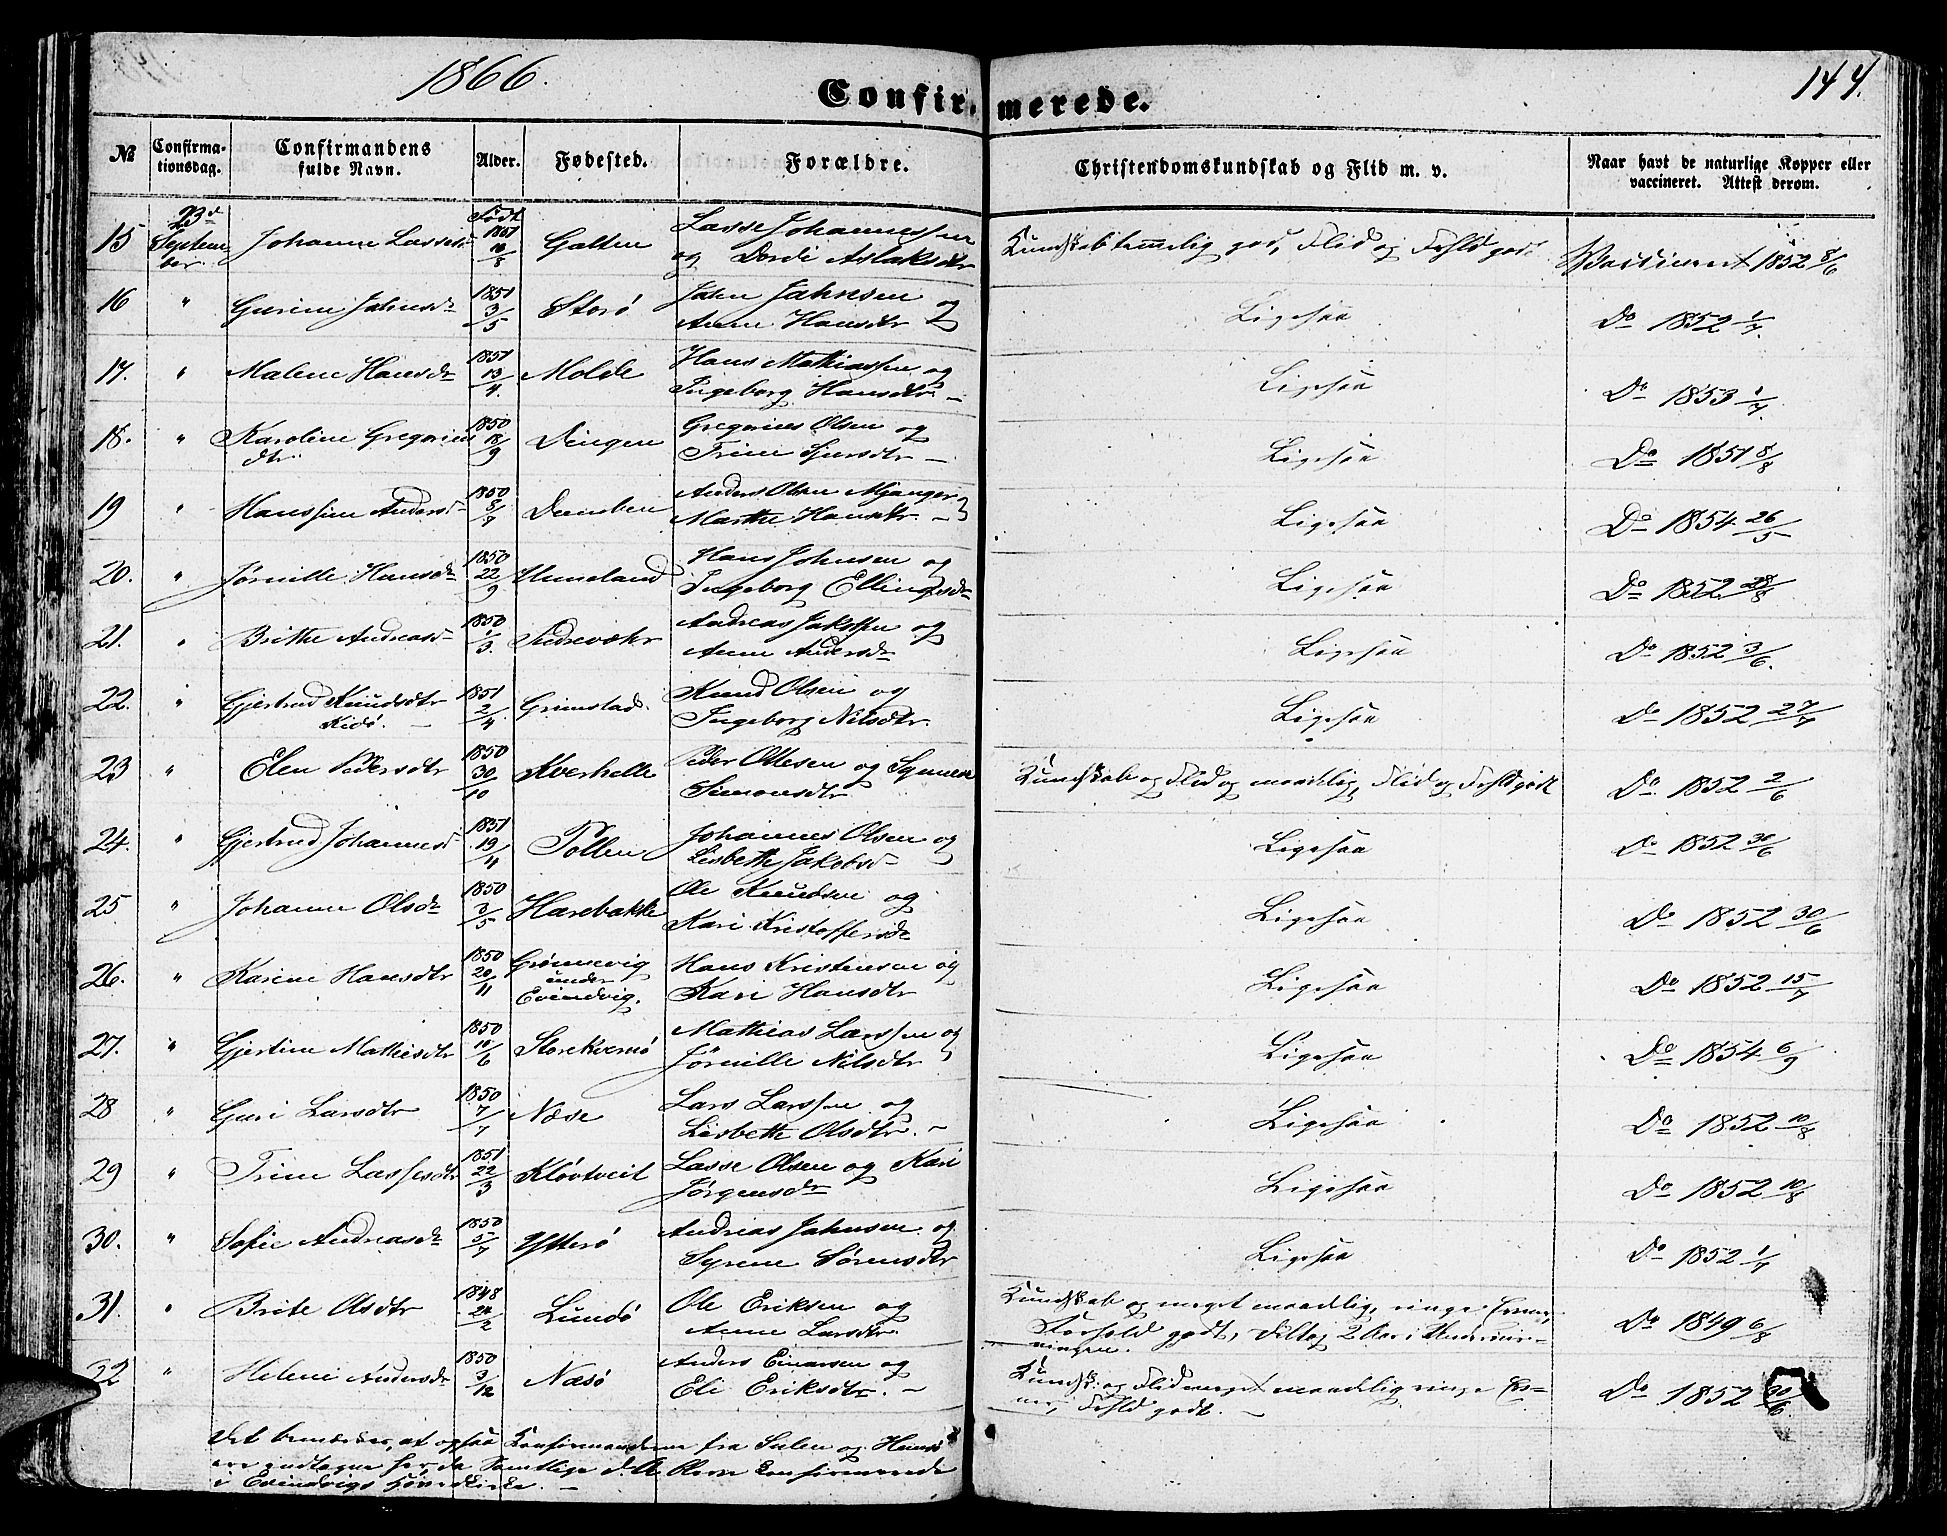 1866.
Confirmerede.
144.
№
Confirmationsdag.
Confirmandens fulde Navn.
Alder.
Fødested.
Forældre.
Christendomskundskab og Flid m. v.
Naar havt de naturlige Kopper eller vaccineret. Attest derom.
15 23de September Johanne Lassesdr Født 1851 10/8 Galten Lasse Johannessen og Dordi Aslaksdtr Kundskab temmelig god, Flid og Forhld godt Vaccineret 1852 8/6
16 " Gurine Jahnsdr 1851 3/5 Storø Jahn Jahnsen og Anne Hansdtr Ligesaa Do 1852 1/7.
17. " Malene Hansdr 1851 13/4. Molde Hans Mathiassen og Ingeborg Hansdtr. Ligesaa Do 1853 1/7.
18. " Karoline Gregorius dtr 1850 18/9 Dingen Gregorius Olsen og Trine Sjursdtr Ligesaa Do 1851 8/8
19 " Hanssine Andersd 1850 8/7 Anders Olsen Mjanger Marthe Hansdtr. Ligesaa Do 1854 26/5
20. " Jørnille Hansdr 1850 22/9 Huneland Hans Johnsen og Ingeborg Ellingsdr Ligesaa Do 1852 28/8
21. " Brithe Andreasd 1850 1/3. Andreas Jakobsen og Anne Andersdr Ligesaa Do 1852 3/6.
22. " Gjertrud Knudsdtr Kidø. 1851 2/4 Grimstad. Knud Olsen og Ingeborg Nilsdtr. Ligesaa Do 1852 27/7
23 " Elen Pedersdtr 1850 30/10 Kverhelle Peder Ottesen og Synneve Simonsdtr Kundskab og Flid maadelig, Flid og Forhld godt Do 1852 2/6
24. " Gjertrud Johannesd 1851 19/4 Pollen Johannes Olsen og Lisbethe Jakobsd Ligesaa Do 1852 30/6
25 " Johanne Olsdr 1850 2/5 Harebakke Ole Knudsen og Kari Kristoffersdr Ligesaa Do 1852 30/6
26. " Karine Hansdtr 1850 20/11 Grønevig under Evindvig. Hans Kristensen og Kari Hansdtr Ligesaa Do 1852 15/7
27. " Gjertine Mathisdtr 1850 10/6 Storekvernø Mathias Larssen og Jørnille Nilsdtr Ligesaa Do 1854 6/9
28 " Guri Larsdtr 1850 7/7 Næse Lars Larssen og Lisbethe Olsdtr. Ligesaa Do 1852 10/8
29 " Trine Lassesdtr 1851 22/3 Kløvtveit Lasse Olsen og Kari Jørgensdr Ligesaa Do 1852 10/8
30. " Sofie Andreasdr 1850 5/7 Ytterø Andreas Jahnsen og Syrene Sørensdtr Ligesaa Do 1852 1/7
31. " Brite Olsdtr 1848 24/2 Lundø Ole Eriksen og Anne Larsdtr. Kundskab og meget maadelig, ringe Evner, Forhold godt, Deltog 2 Aar i Do 1849 6/8
32 " Helene Andersdr 1850 3/12 Næsø Anders Einarsen og Eli Eriksdtr. Kundsk. og Flid meget maadelig ringe Evner, Forhld godt. Do 1852 30/6.
Det bemærkes, at ogsaa Konfirmanderne fra Sulen og
ere indtagne her, da Samtlige d. A. bleve Confirmerede
i Evindvigs Hovedkirke.